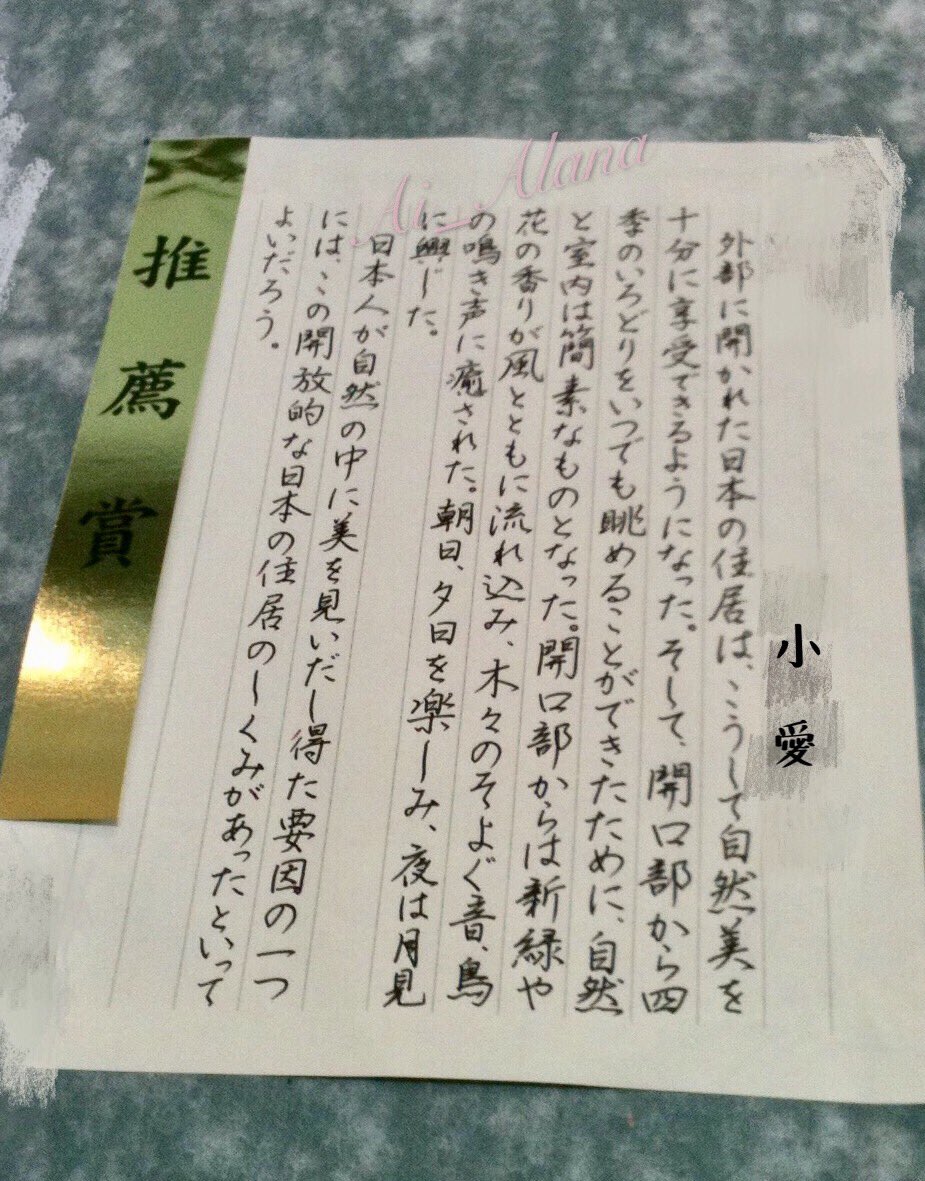 Ai_Alana
小愛
外部に開かれた日本の住居は、こうして自然美を
十分に享受できるようになった。そして、開口部から四
季のいろどりをいつでも眺めることができたために、自然
と室内は簡素なものとなった。開口部からは新緑や
花の香りが風とともに流れ込み、木々のそよぐ音、鳥
の鳴き声に癒された。朝日、夕日を楽しみ、夜は月見
に興じた。
日本人が自然の中に美を見いだし得た要因の一つ
には、この開放的な日本の住居のしくみがあったといって
よいだろう。
推薦賞